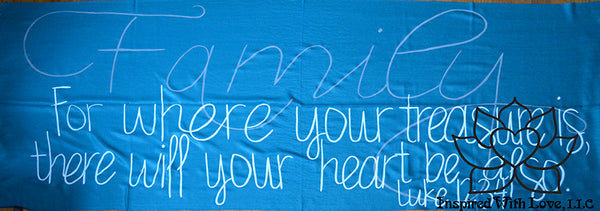 Family
For where your treasure is,
there will your heart be also.
Luke 12:34
Inspired With Love, LLC